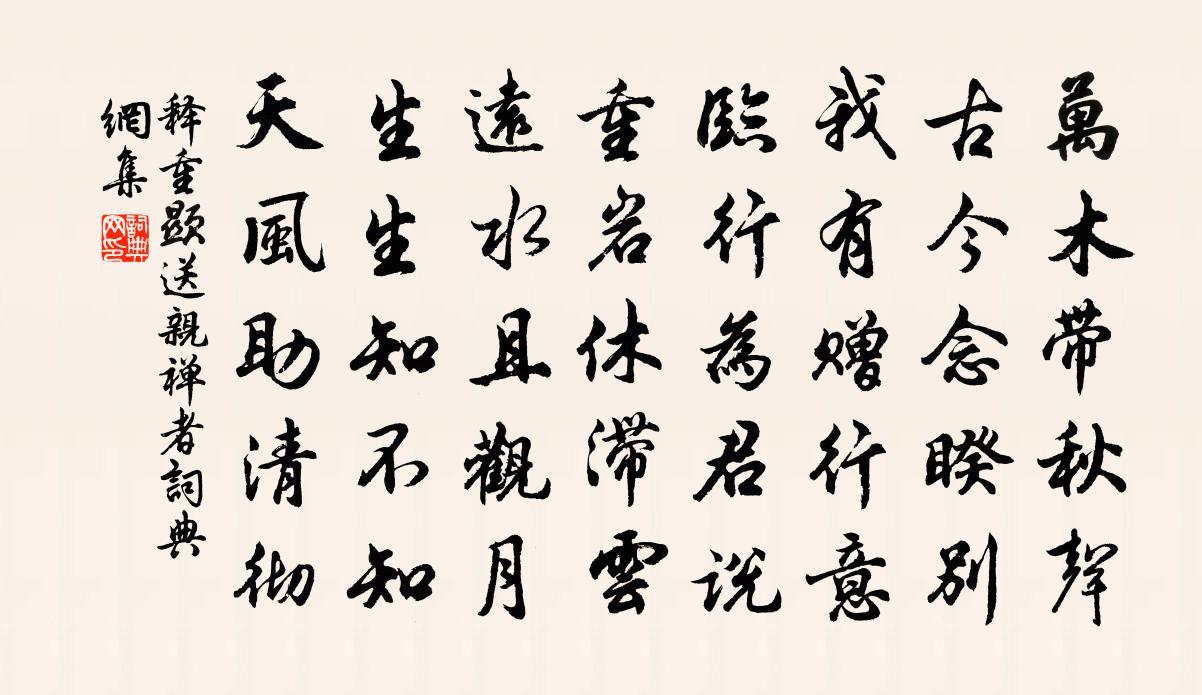 萬木帶秋聲
古今念睽別
我有贈行意
臨行為君說
重岩休滯雲
遠水且觀月
生生知不知
天風助清彻
释重顕送親禅者詞典
網集
詞典網印